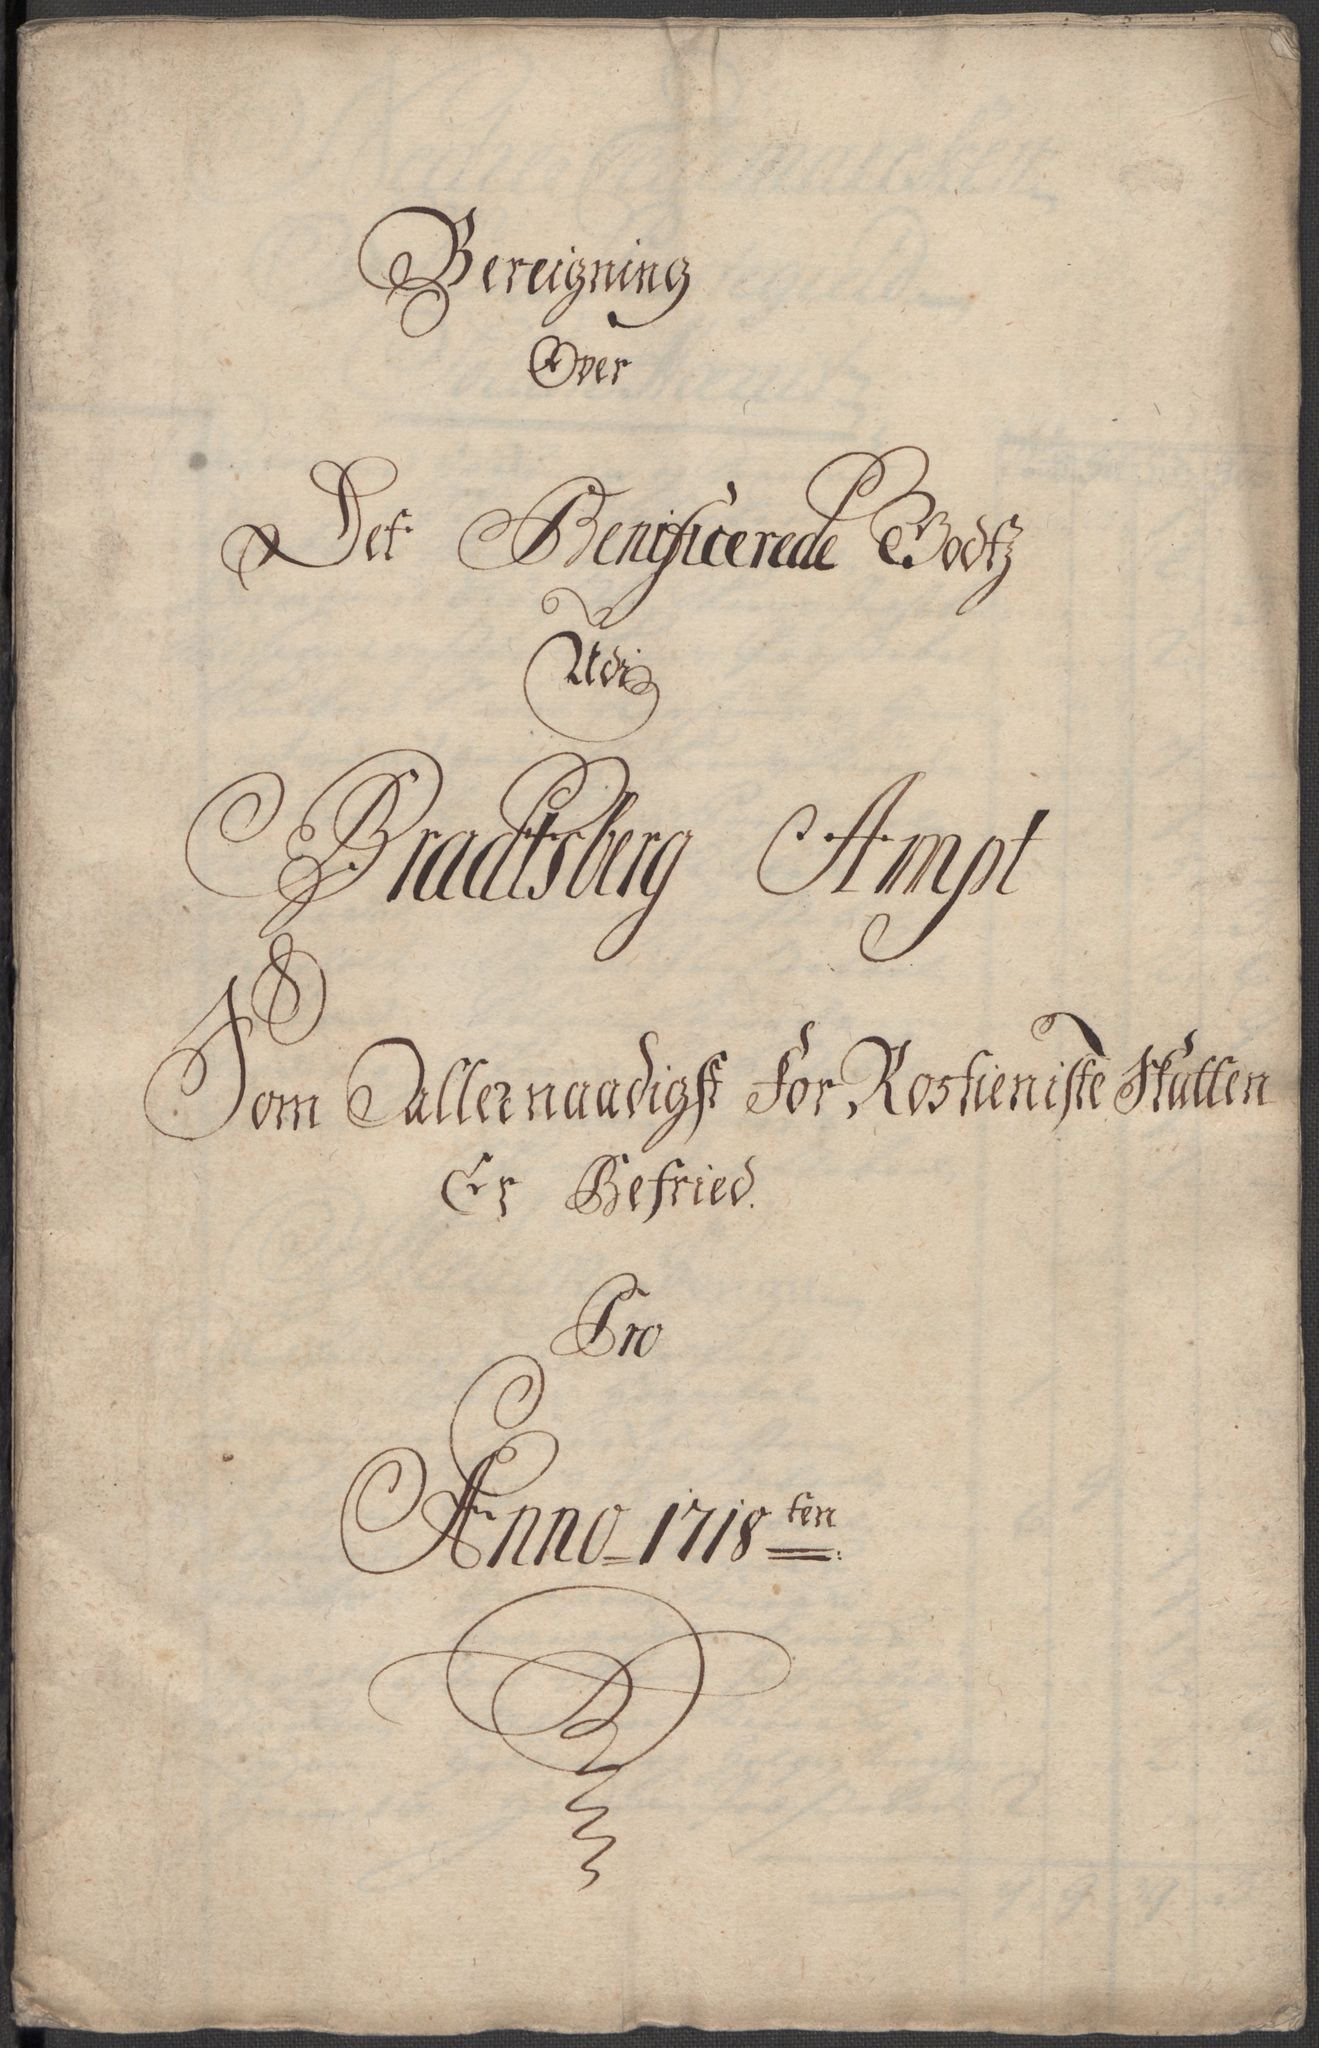 Bereigning
Over
Det Benificerede Godtz
Udi
Bradtsberg Ampt
Som Allernaadigst for Rostieniste Skatten
Er Befried.
Pro
Anno 1718ten